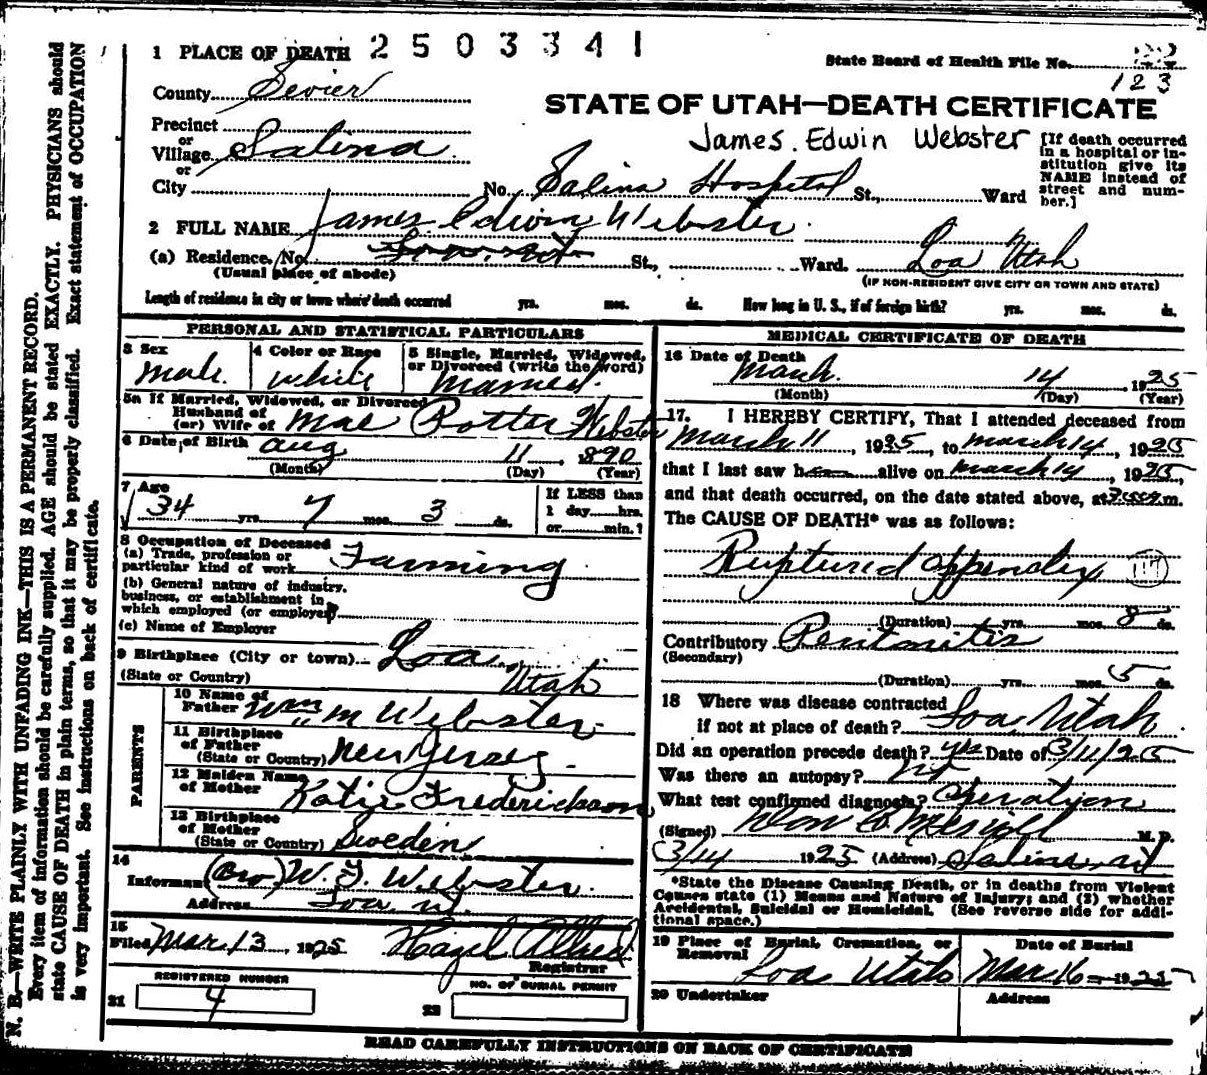 1 PLACE OF DEATH 2503341
State Board of Health File No.
123
County Sevier
STATE OF UTAH—DEATH CERTIFICATE
James. Edwin Webster
[If death occurred in a hospital or institution give its NAME instead of street and number.]
Precinct
or
Village Salina
or
City No. Salina Hospital St., Ward
2 FULL NAME James Edwin Webster
(a) Residence. No. St., Ward. Loa Utah
(Usual place of abode) (IF NON-RESIDENT GIVE CITY OR TOWN AND STATE)
Length of residence in city or town where death occurred yrs. mos. ds. How long in U. S., if of foreign birth? yrs. mos. ds.
PERSONAL AND STATISTICAL PARTICULARS
3 Sex
male.
4 Color or Race
white
5 Single, Married, Widowed, or Divorced (write the word)
Married.
5a If Married, Widowed, or Divorced
Husband of
(or) Wife of Mae Potter Webster
6 Date of Birth Aug 11, 890
(Month) (Day) (Year)
7 Age
34 yrs. 7 mos. 3 ds.
If LESS than
1 day hrs.
or min.?
8 Occupation of Deceased
(a) Trade, profession or
particular kind of work Farming
(b) General nature of industry,
business, or establishment in
which employed (or employer)
(c) Name of Employer
9 Birthplace (City or town) Loa
(State or Country) Utah
PARENTS
10 Name of
Father Wm M Webster
11 Birthplace
of Father
(State or Country) New Jersey
12 Maiden Name
of Mother Katie Frederickson
13 Birthplace
of Mother
(State or Country) Sweden
14
Informant (Bro) W. J. Webster
Address Loa Ut.
15
Filed Mar 13, 1925 Hazel Allred
Registrar
REGISTERED NUMBER
21 4
NO. OF BURIAL PERMIT
22
MEDICAL CERTIFICATE OF DEATH
16 Date of Death
March 14, 1925
(Month) (Day) (Year)
17. I HEREBY CERTIFY, That I attended deceased from
March 11, 1925, to March 14, 1925
that I last saw h alive on March 14, 1925,
and that death occurred, on the date stated above, at m.
The CAUSE OF DEATH* was as follows:
Ruptured Appendix 117
(Duration) yrs. mos. 8 ds.
Contributory Peritonitis
(Secondary)
(Duration) yrs. mos. 5 ds.
18 Where was disease contracted
if not at place of death? Loa, Utah
Did an operation precede death? yes Date of 3/11/25
Was there an autopsy? no
What test confirmed diagnosis? Operation
(Signed) M. D.
3/14 1925 (Address) Salina, Ut
*State the Disease Causing Death, or in deaths from Violent Causes state (1) Means and Nature of Injury; and (2) whether Accidental, Suicidal or Homicidal. (See reverse side for additional space.)
19 Place of Burial, Cremation, or Removal
Loa Utah
Date of Burial
Mar 16 1925
20 Undertaker
Address
READ CAREFULLY INSTRUCTIONS ON BACK OF CERTIFICATE
N. B.—WRITE PLAINLY WITH UNFADING INK—THIS IS A PERMANENT RECORD.
Every item of information should be carefully supplied. AGE should be stated EXACTLY. PHYSICIANS should
state CAUSE OF DEATH in plain terms, so that it may be properly classified. Exact statement of OCCUPATION
is very important. See instructions on back of certificate.